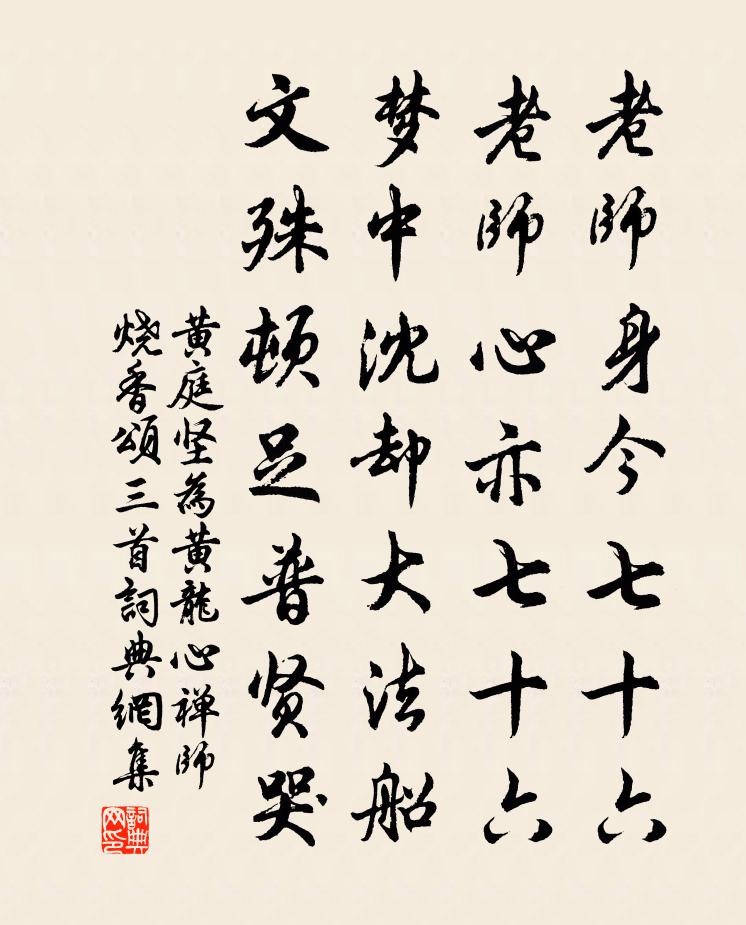 老師身今七十六
老師心亦七十六
梦中沈却大法船
文殊頓足普贤哭
黄庭坚為黄龍心禅師
烧香頌三首詞典網集
詞典网印